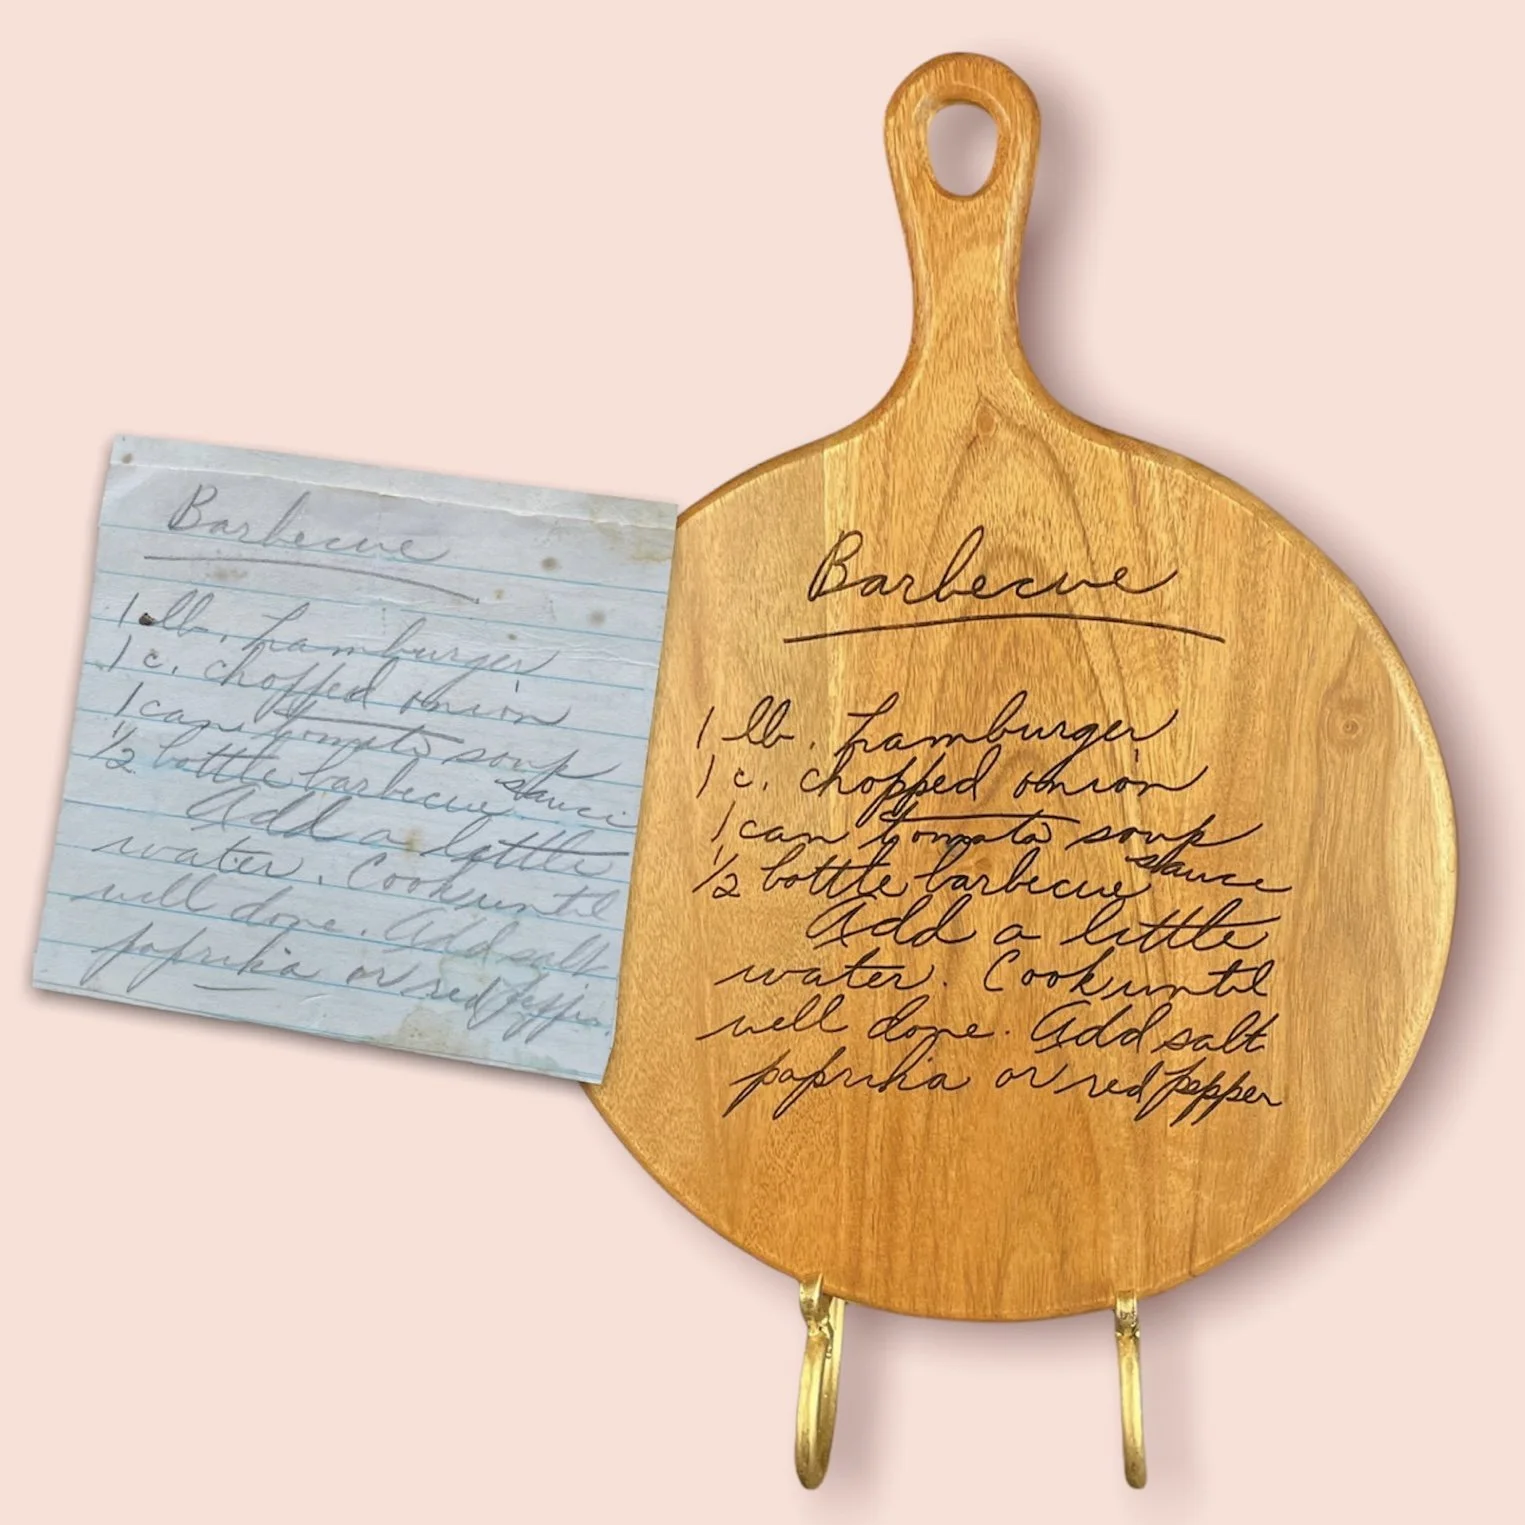 Barbecue
1 lb. hamburger
1 c. chopped onion
1 can tomato soup
1/2 bottle barbecue sauce
Add a little
water. Cook until
well done. Add salt
paprika or red pepper
Barbecue
1 lb. hamburger
1 c. chopped onion
1 can tomato soup
1/2 bottle barbecue sauce
Add a little
water. Cook until
well done. Add salt
paprika or red pepper